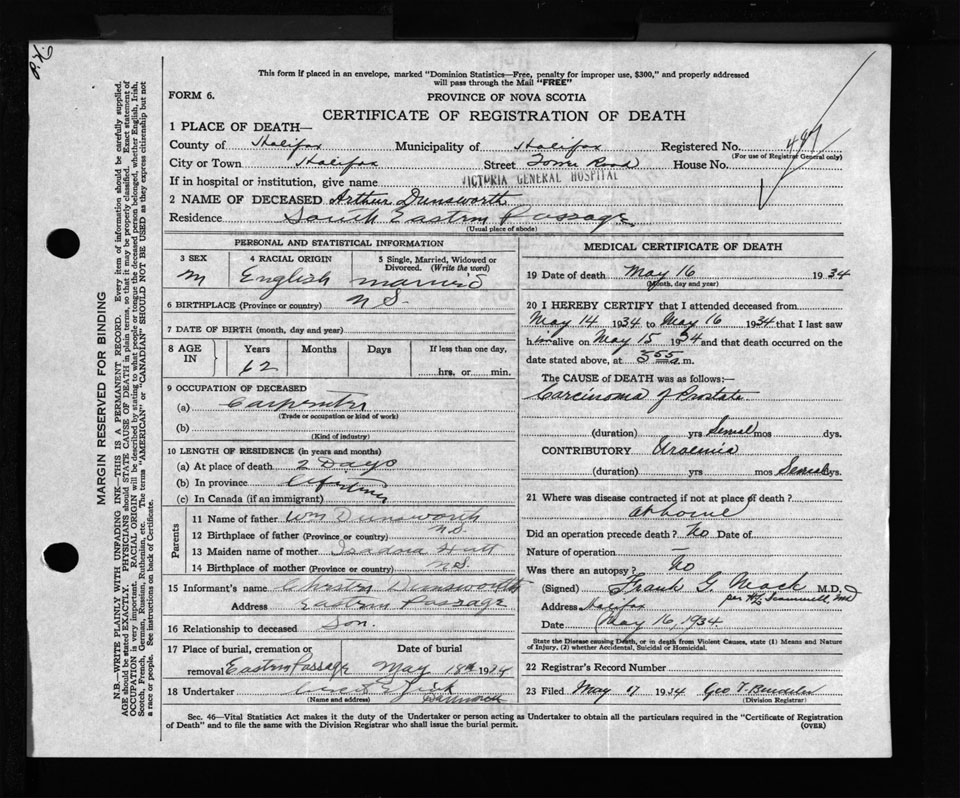 P.X.
This form if placed in an envelope, marked "Dominion Statistics—Free, penalty for improper use, $300," and properly addressed
will pass through the Mail "FREE"
FORM 6.
PROVINCE OF NOVA SCOTIA
CERTIFICATE OF REGISTRATION OF DEATH
1 PLACE OF DEATH—
County of Halifax Municipality of Halifax Registered No.
(For use of Registrar General only)
City or Town Halifax Street Tower Road House No.
If in hospital or institution, give name VICTORIA GENERAL HOSPITAL
2 NAME OF DECEASED Arthur Dunsworth
Residence South Eastern Passage
(Usual place of abode)
PERSONAL AND STATISTICAL INFORMATION
3 SEX 4 RACIAL ORIGIN 5 Single, Married, Widowed or
Divorced. (Write the word)
M English married
6 BIRTHPLACE (Province or country) N S.
7 DATE OF BIRTH (month, day and year)
8 AGE IN Years Months Days If less than one day,
62 hrs. or min.
9 OCCUPATION OF DECEASED
(a) Carpenter
(Trade or occupation or kind of work)
(b)
(Kind of industry)
10 LENGTH OF RESIDENCE (in years and months)
(a) At place of death 2 Days
(b) In province Lifetime
(c) In Canada (if an immigrant)
Parents
11 Name of father Wm Dunsworth
12 Birthplace of father (Province or country) N.S.
13 Maiden name of mother Isadora
14 Birthplace of mother (Province or country) N.S.
15 Informant's name Dunsworth
Address Eastern Passage
16 Relationship to deceased Son.
17 Place of burial, cremation or Date of burial
removal Eastern Passage May 18th 1934
18 Undertaker
(Name and address)
MEDICAL CERTIFICATE OF DEATH
19 Date of death May 16 1934
(Month, day and year)
20 I HEREBY CERTIFY that I attended deceased from
May 14 1934 to May 16 1934 that I last saw
him alive on May 15 1934 and that death occurred on the
date stated above, at 3 55 a.m.
The CAUSE of DEATH was as follows:—
Carcinoma of Prostate
(duration) yrs mos dys.
CONTRIBUTORY Uraemia
(duration) yrs mos dys.
21 Where was disease contracted if not at place of death?
at home
Did an operation precede death? No Date of
Nature of operation —
Was there an autopsy? No
(Signed) Frank G. Mack M.D.
per
Address Halifax
Date May 16, 1934
State the Disease causing Death, or in death from Violent Causes, state (1) Means and Nature
of Injury, (2) whether Accidental, Suicidal or Homicidal.
22 Registrar's Record Number
23 Filed May 17 1934 Geo T.
(Division Registrar)
Sec. 46—Vital Statistics Act makes it the duty of the Undertaker or person acting as Undertaker to obtain all the particulars required in the "Certificate of Registration
of Death" and to file the same with the Division Registrar who shall issue the burial permit. (OVER)
MARGIN RESERVED FOR BINDING
N.B.—WRITE PLAINLY WITH UNFADING INK—THIS IS A PERMANENT RECORD. Every item of information should be carefully supplied.
AGE should be stated EXACTLY. PHYSICIANS should STATE CAUSE OF DEATH in plain terms, so that it may be properly classified. Exact statement of
OCCUPATION is very important. RACIAL ORIGIN will be described by stating to what people or tongue the deceased person belonged, whether English, Irish,
Scotch, French, German, Russian, Ruthenian, etc. The terms "AMERICAN" or "CANADIAN" SHOULD NOT BE USED as they express citizenship but not
a race or people. See instructions on back of Certificate.